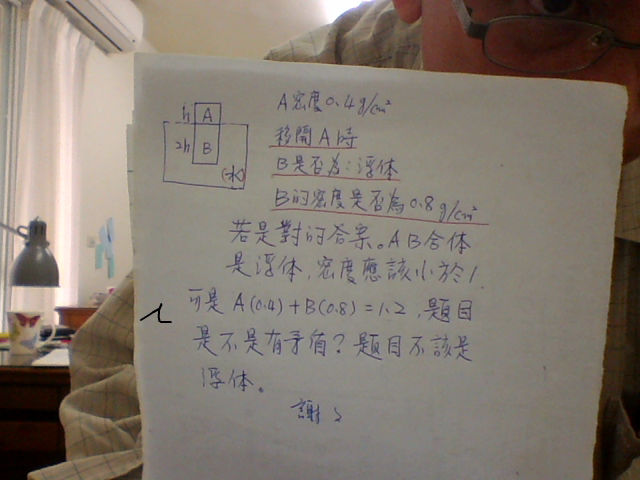 A密度0.4g/cm²
h A
移開A時
2h B
B是否為:浮体
(水)
B的密度是否為0.8g/cm²
若是對的答案。AB合体
是浮体,密度應該小於1.
可是A(0.4)+B(0.8)=1.2,題目
是不是有矛盾?題目不該是
浮体。
謝